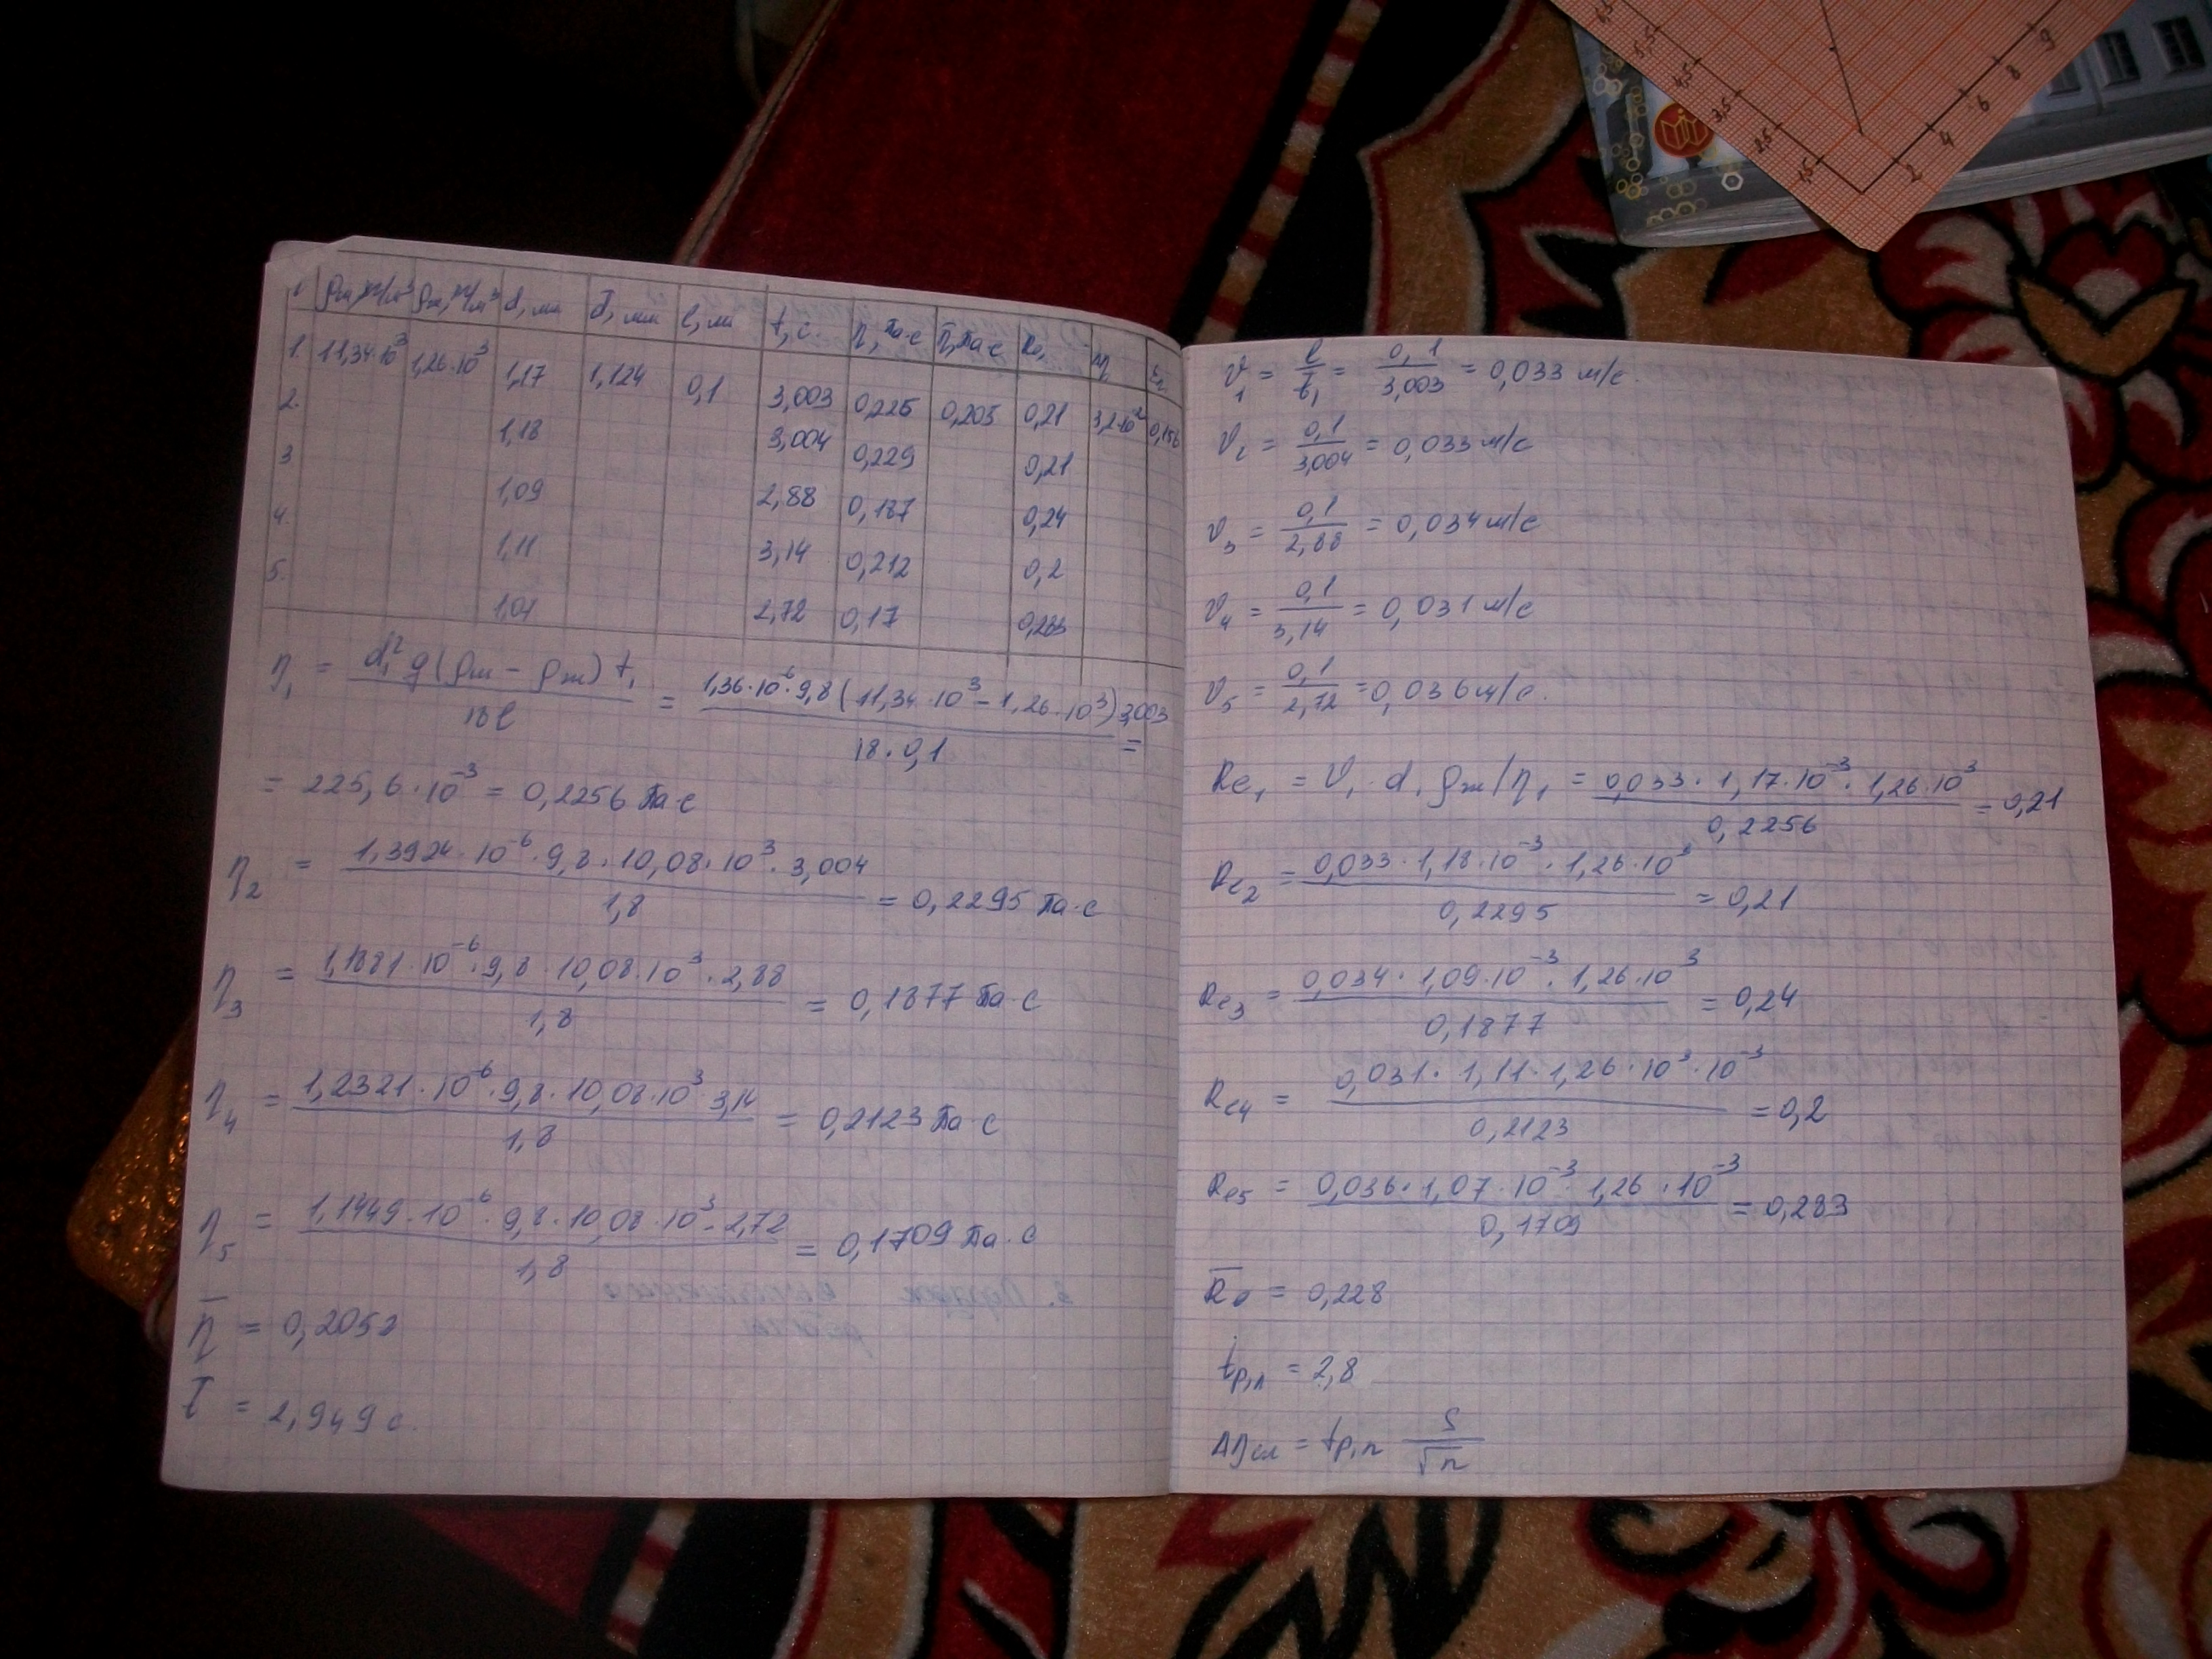 i ρш, кг/м³ ρж, кг/м³ d, мм d̅, мм l, м t, с η, Па·с η̅, Па·с Re, Δη εη
1. 11,34·10³ 1,26·10³ 1,17 1,124 0,1 3,003 0,225 0,205 0,21 3,2·10⁻² 0,156
2. 1,18 3,004 0,229 0,21
3 1,09 2,88 0,187 0,24
4. 1,11 3,14 0,212 0,2
5. 1,07 2,72 0,17 0,283
η₁ = d₁² g (ρш - ρж) t₁ / 18l = 1,36·10⁻⁶·9,8 (11,34·10³ - 1,26·10³) 3,003 / 18·0,1 =
= 225,6·10⁻³ = 0,2256 Па·с
η₂ = 1,3924·10⁻⁶·9,8·10,08·10³·3,004 / 1,8 = 0,2295 Па·с
η₃ = 1,1881·10⁻⁶·9,8·10,08·10³·2,88 / 1,8 = 0,1877 Па·с
η₄ = 1,2321·10⁻⁶·9,8·10,08·10³·3,14 / 1,8 = 0,2123 Па·с
η₅ = 1,1449·10⁻⁶·9,8·10,08·10³·2,72 / 1,8 = 0,1709 Па·с
η̅ = 0,2052
t̅ = 2,949 с.
v₁ = l / t₁ = 0,1 / 3,003 = 0,033 м/с.
v₂ = 0,1 / 3,004 = 0,033 м/с
v₃ = 0,1 / 2,88 = 0,034 м/с
v₄ = 0,1 / 3,14 = 0,031 м/с
v₅ = 0,1 / 2,72 = 0,036 м/с.
Re₁ = v₁·d₁ρж/η₁ = 0,033·1,17·10⁻³·1,26·10³ / 0,2256 = 0,21
Re₂ = 0,033·1,18·10⁻³·1,26·10³ / 0,2295 = 0,21
Re₃ = 0,034·1,09·10⁻³·1,26·10³ / 0,1877 = 0,24
Re₄ = 0,031·1,11·1,26·10³·10⁻³ / 0,2123 = 0,2
Re₅ = 0,036·1,07·10⁻³·1,26·10⁻³ / 0,1709 = 0,283
R̅e̅ = 0,228
tp,n = 2,8
Δηсл = tp,n S / √n
1,5 2,5 3,5 4,5 5,5 6,5
2 4 6 8 9